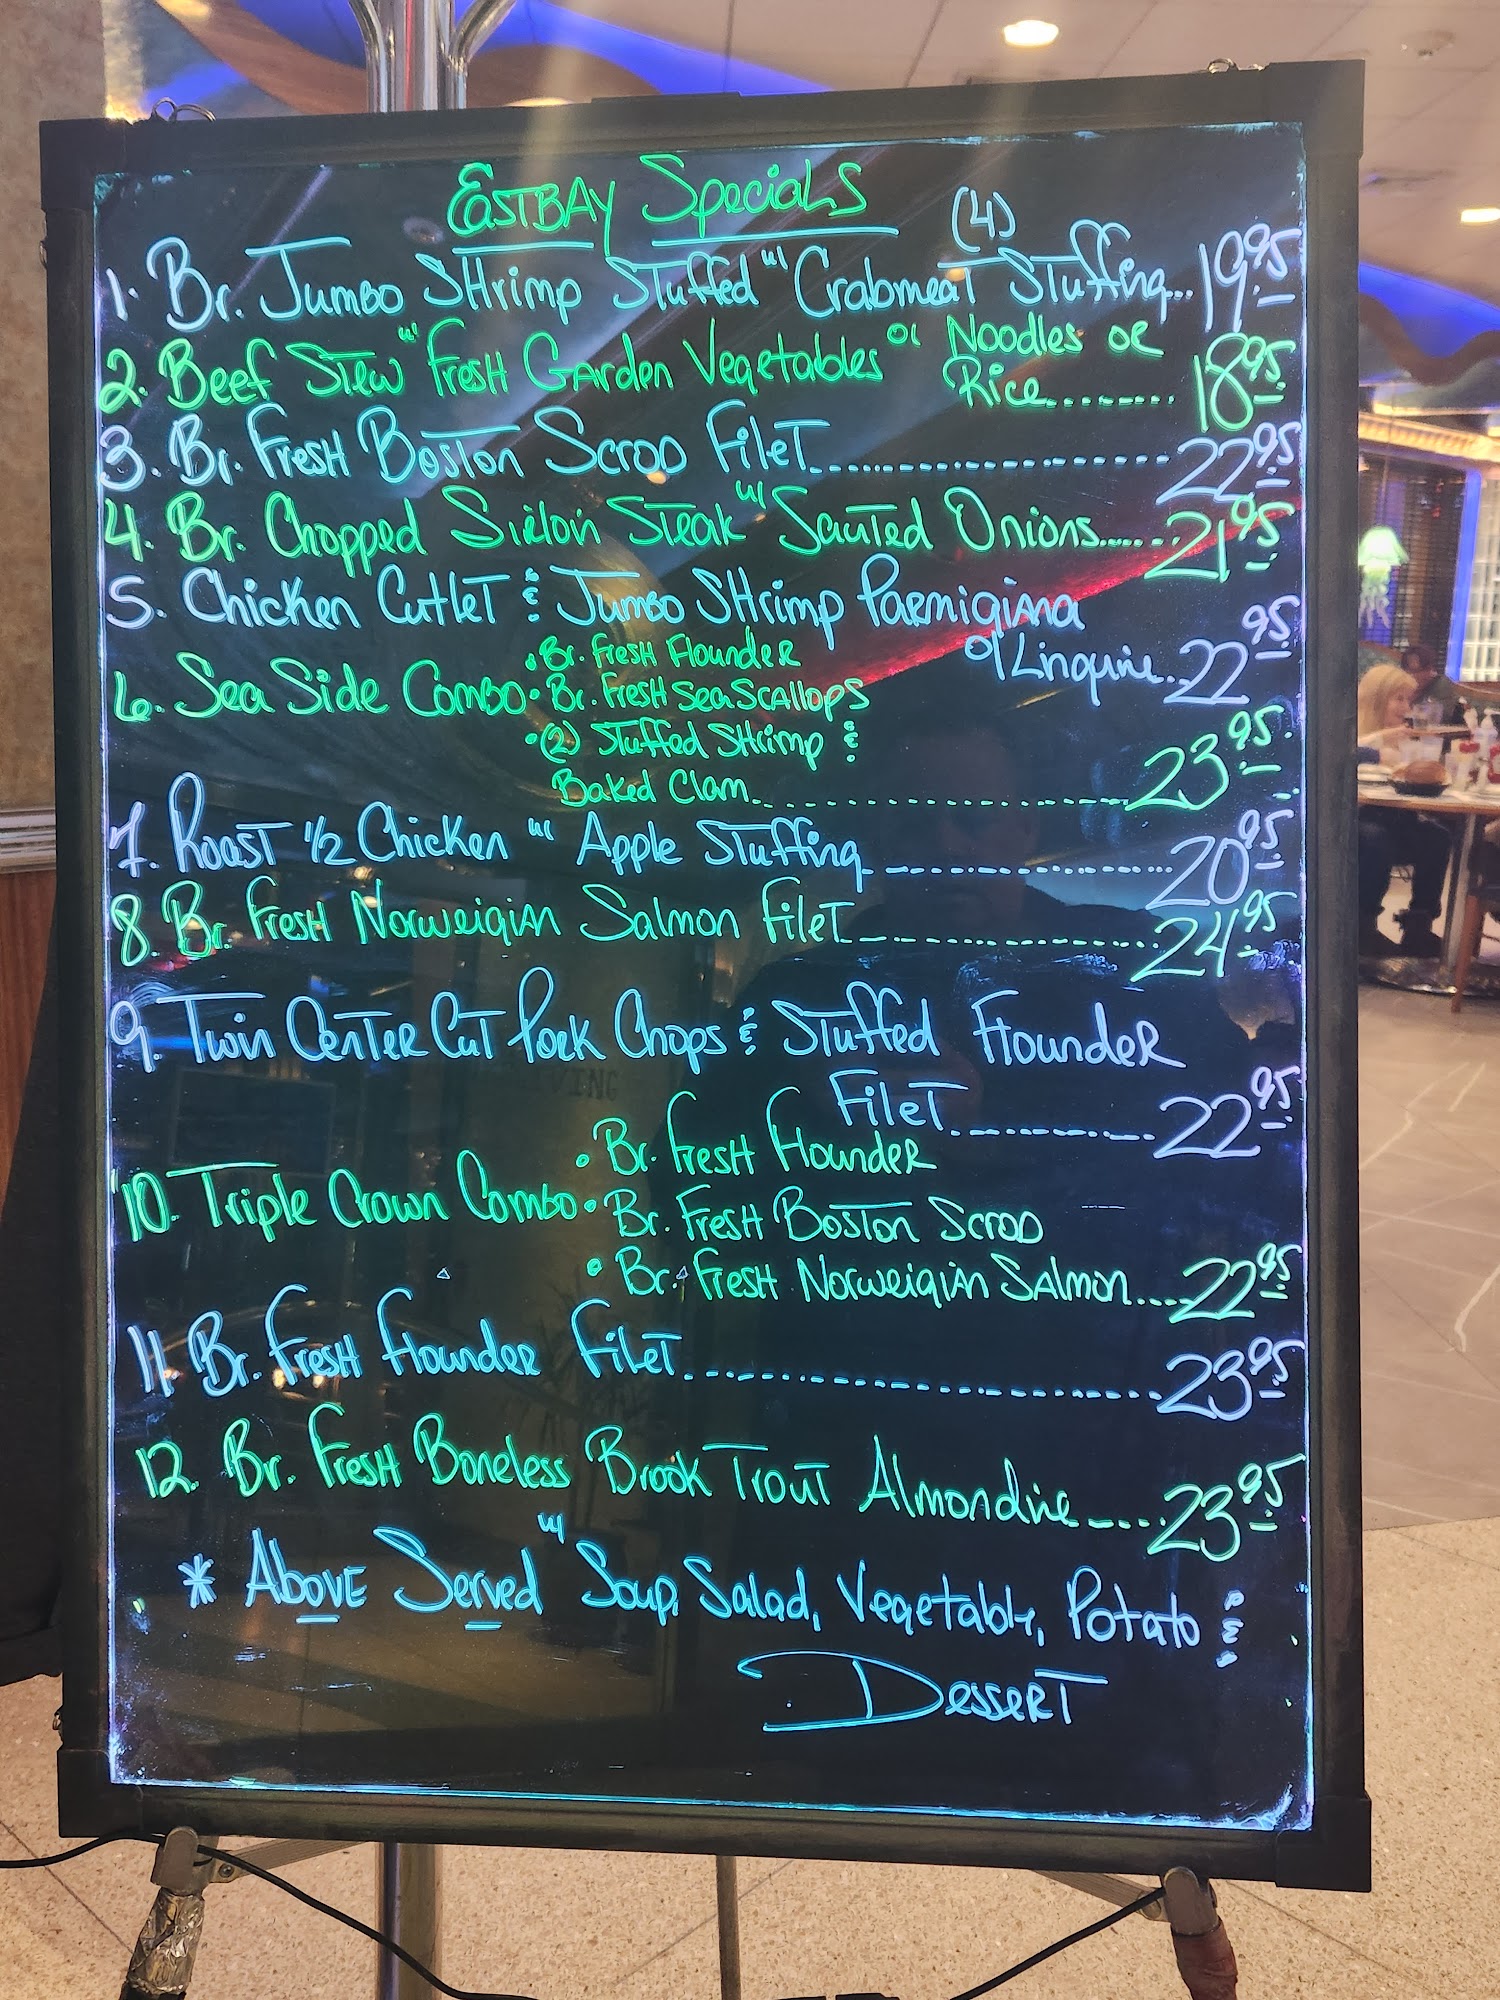 EastBay Specials
(4)
1. Br. Jumbo Shrimp Stuffed "w/ Crabmeat Stuffing... 19.95
2. Beef Stew "w/ Fresh Garden Vegetables" o/ Noodles or
Rice......... 18.95
3. Br. Fresh Boston Scrod Filet.................... 22.95
4. Br. Chopped Sirloin Steak "w/ Sauted Onions...... 21.95
5. Chicken Cutlet & Jumbo Shrimp Parmigiana
o/ Linguine... 22.95
6. Sea Side Combo • Br. Fresh Flounder
• Br. Fresh Sea Scallops
• (2) Stuffed Shrimp &
Baked Clam......................... 23.95
7. Roast 1/2 Chicken "w/ Apple Stuffing.................. 20.95
8. Br. Fresh Norweigian Salmon Filet.................. 24.95
9. Twin Center Cut Pork Chops & Stuffed Flounder
Filet............... 22.95
10. Triple Crown Combo • Br. Fresh Flounder
• Br. Fresh Boston Scrod
• Br. Fresh Norweigian Salmon.... 22.95
11. Br. Fresh Flounder Filet......................... 23.95
12. Br. Fresh Boneless Brook Trout Almondine...... 23.95
* Above Served "w/ Soup, Salad, Vegetable, Potato &
Dessert